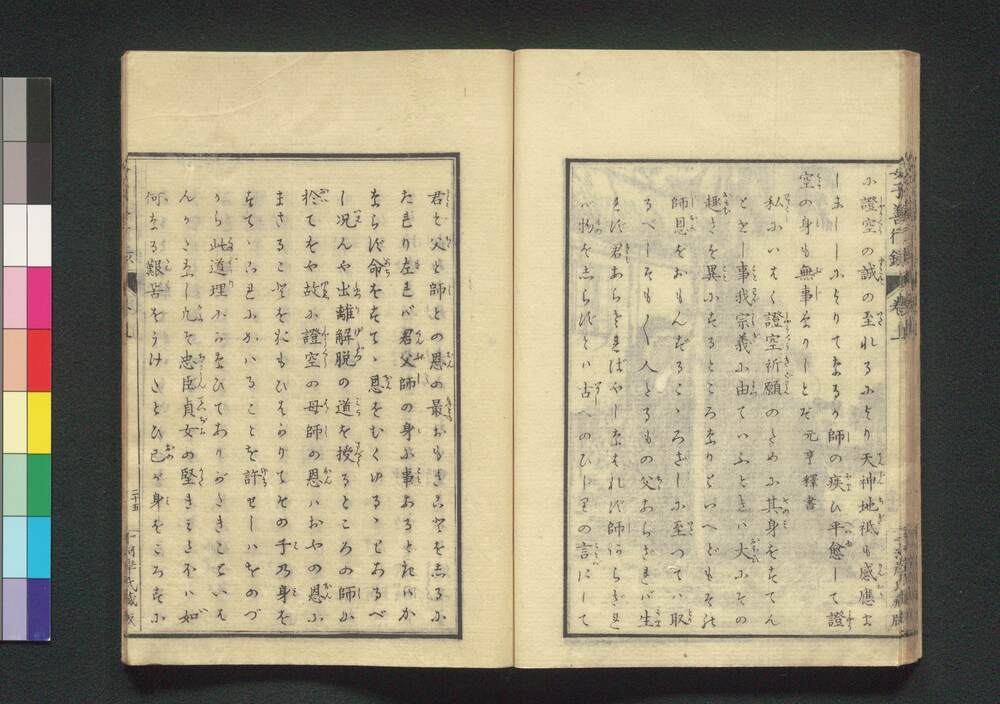 に證空の誠の至れるにより天神地祇も感應まし
しましによりてまるか師の疾ひ平愈して證
空の身も無事なりしとぞ元亨釋書
私にいはく證空祈願のために其身をすてん
とせし事我宗義に由ていふときは大にその
趣きを異にするところなりといへどもそれ
師恩をおもんずるこゝろざしに至つては取
るべしそも〳〵人とるもの父あらざれば生
れず君あらざればやしなはれず師あらざれ
ば物をしらずとは古へのひじりの言にして
君と父と師との恩の最おもきことをしるに
たれり左れば君父師の身に事あるときはか
ならず命をすてゝ恩をむくゆるゝとあるべ
し况んや出離解脱の道を授るところの師に
於てをや故に證空の母師の恩はおやの恩に
まさることをおもひはかりてその子乃身を
すてゝこれにかはることを許せしはをのづ
から此道理にかなひてありがたきことといは
んかさるに九そ忠臣貞女の堅きみさほは如
何なる艱苦をうけたとひ己が身をころすに
善行録 卷上
二十五